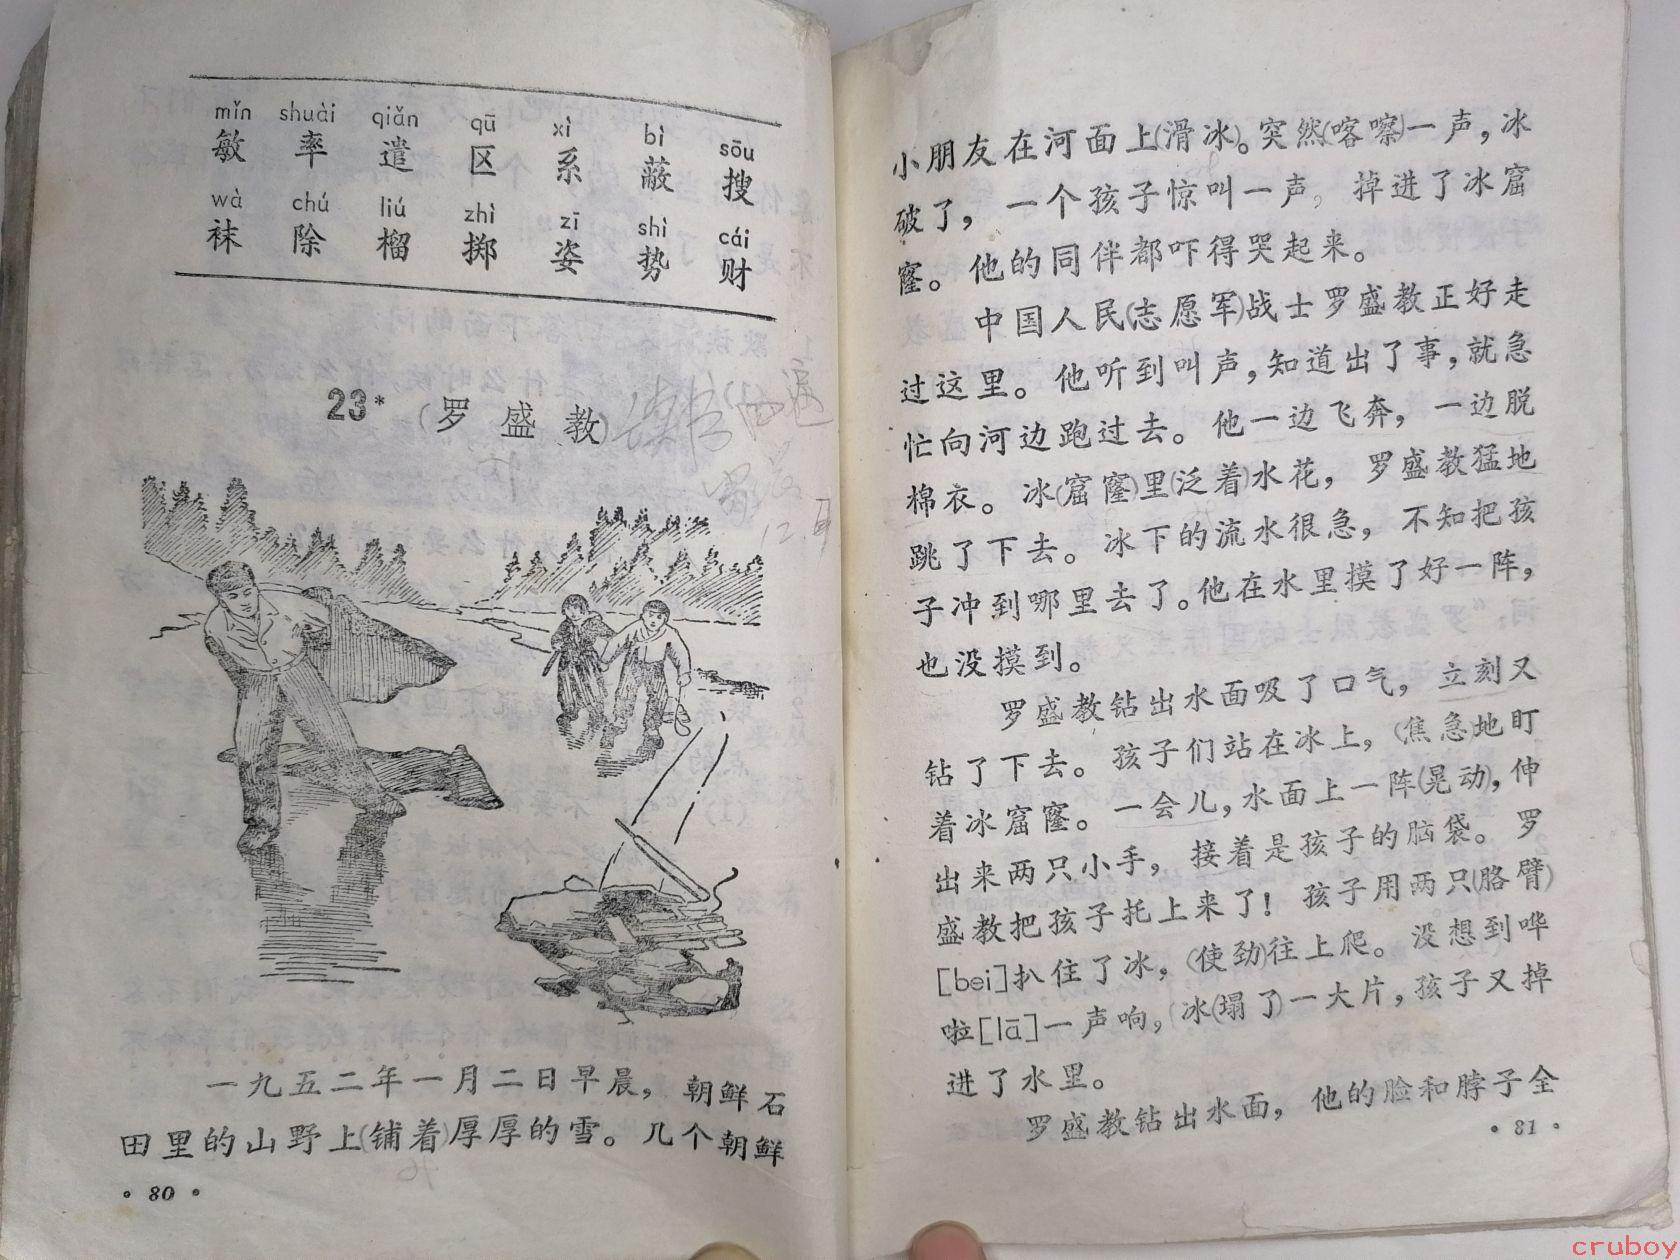 mǐn shuài qiǎn qū xì bì sōu
敏 率 遣 区 系 蔽 搜
wà chú liú zhì zī shì cái
袜 除 榴 掷 姿 势 财
23* (罗盛教)
12.
一九五二年一月二日早晨，朝鲜石
田里的山野上(铺着)厚厚的雪。几个朝鲜
·80·
小朋友在河面上(滑冰)。突然(喀嚓)一声，冰
破了，一个孩子惊叫一声，掉进了冰窟
窿。他的同伴都吓得哭起来。
中国人民(志愿军)战士罗盛教正好走
过这里。他听到叫声，知道出了事，就急
忙向河边跑过去。他一边飞奔，一边脱
棉衣。冰(窟窿)里(泛着)水花，罗盛教猛地
跳了下去。冰下的流水很急，不知把孩
子冲到哪里去了。他在水里摸了好一阵，
也没摸到。
罗盛教钻出水面吸了口气，立刻又
钻了下去。孩子们站在冰上，(焦急)地盯
着冰窟窿。一会儿，水面上一阵(晃动)，伸
出来两只小手，接着是孩子的脑袋。罗
盛教把孩子托上来了！孩子用两只(胳臂)
[bei]扒住了冰，(使劲)往上爬。没想到哗
啦[lā]一声响，冰(塌了)一大片，孩子又掉
进了水里。
罗盛教钻出水面，他的脸和脖子全
·81·
cruboy